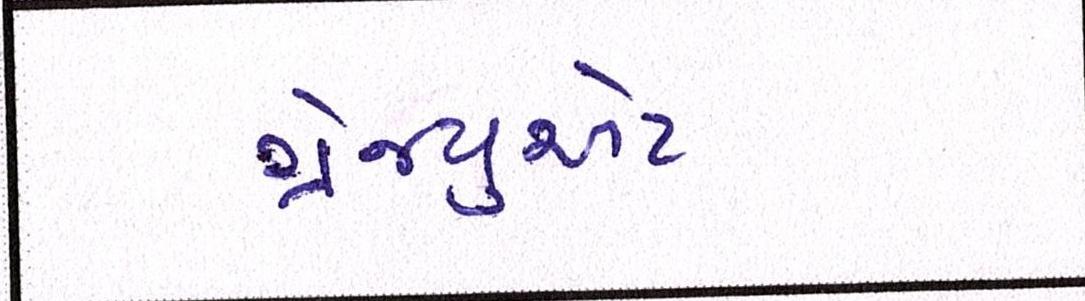 ગ્રેજ્યુએટ